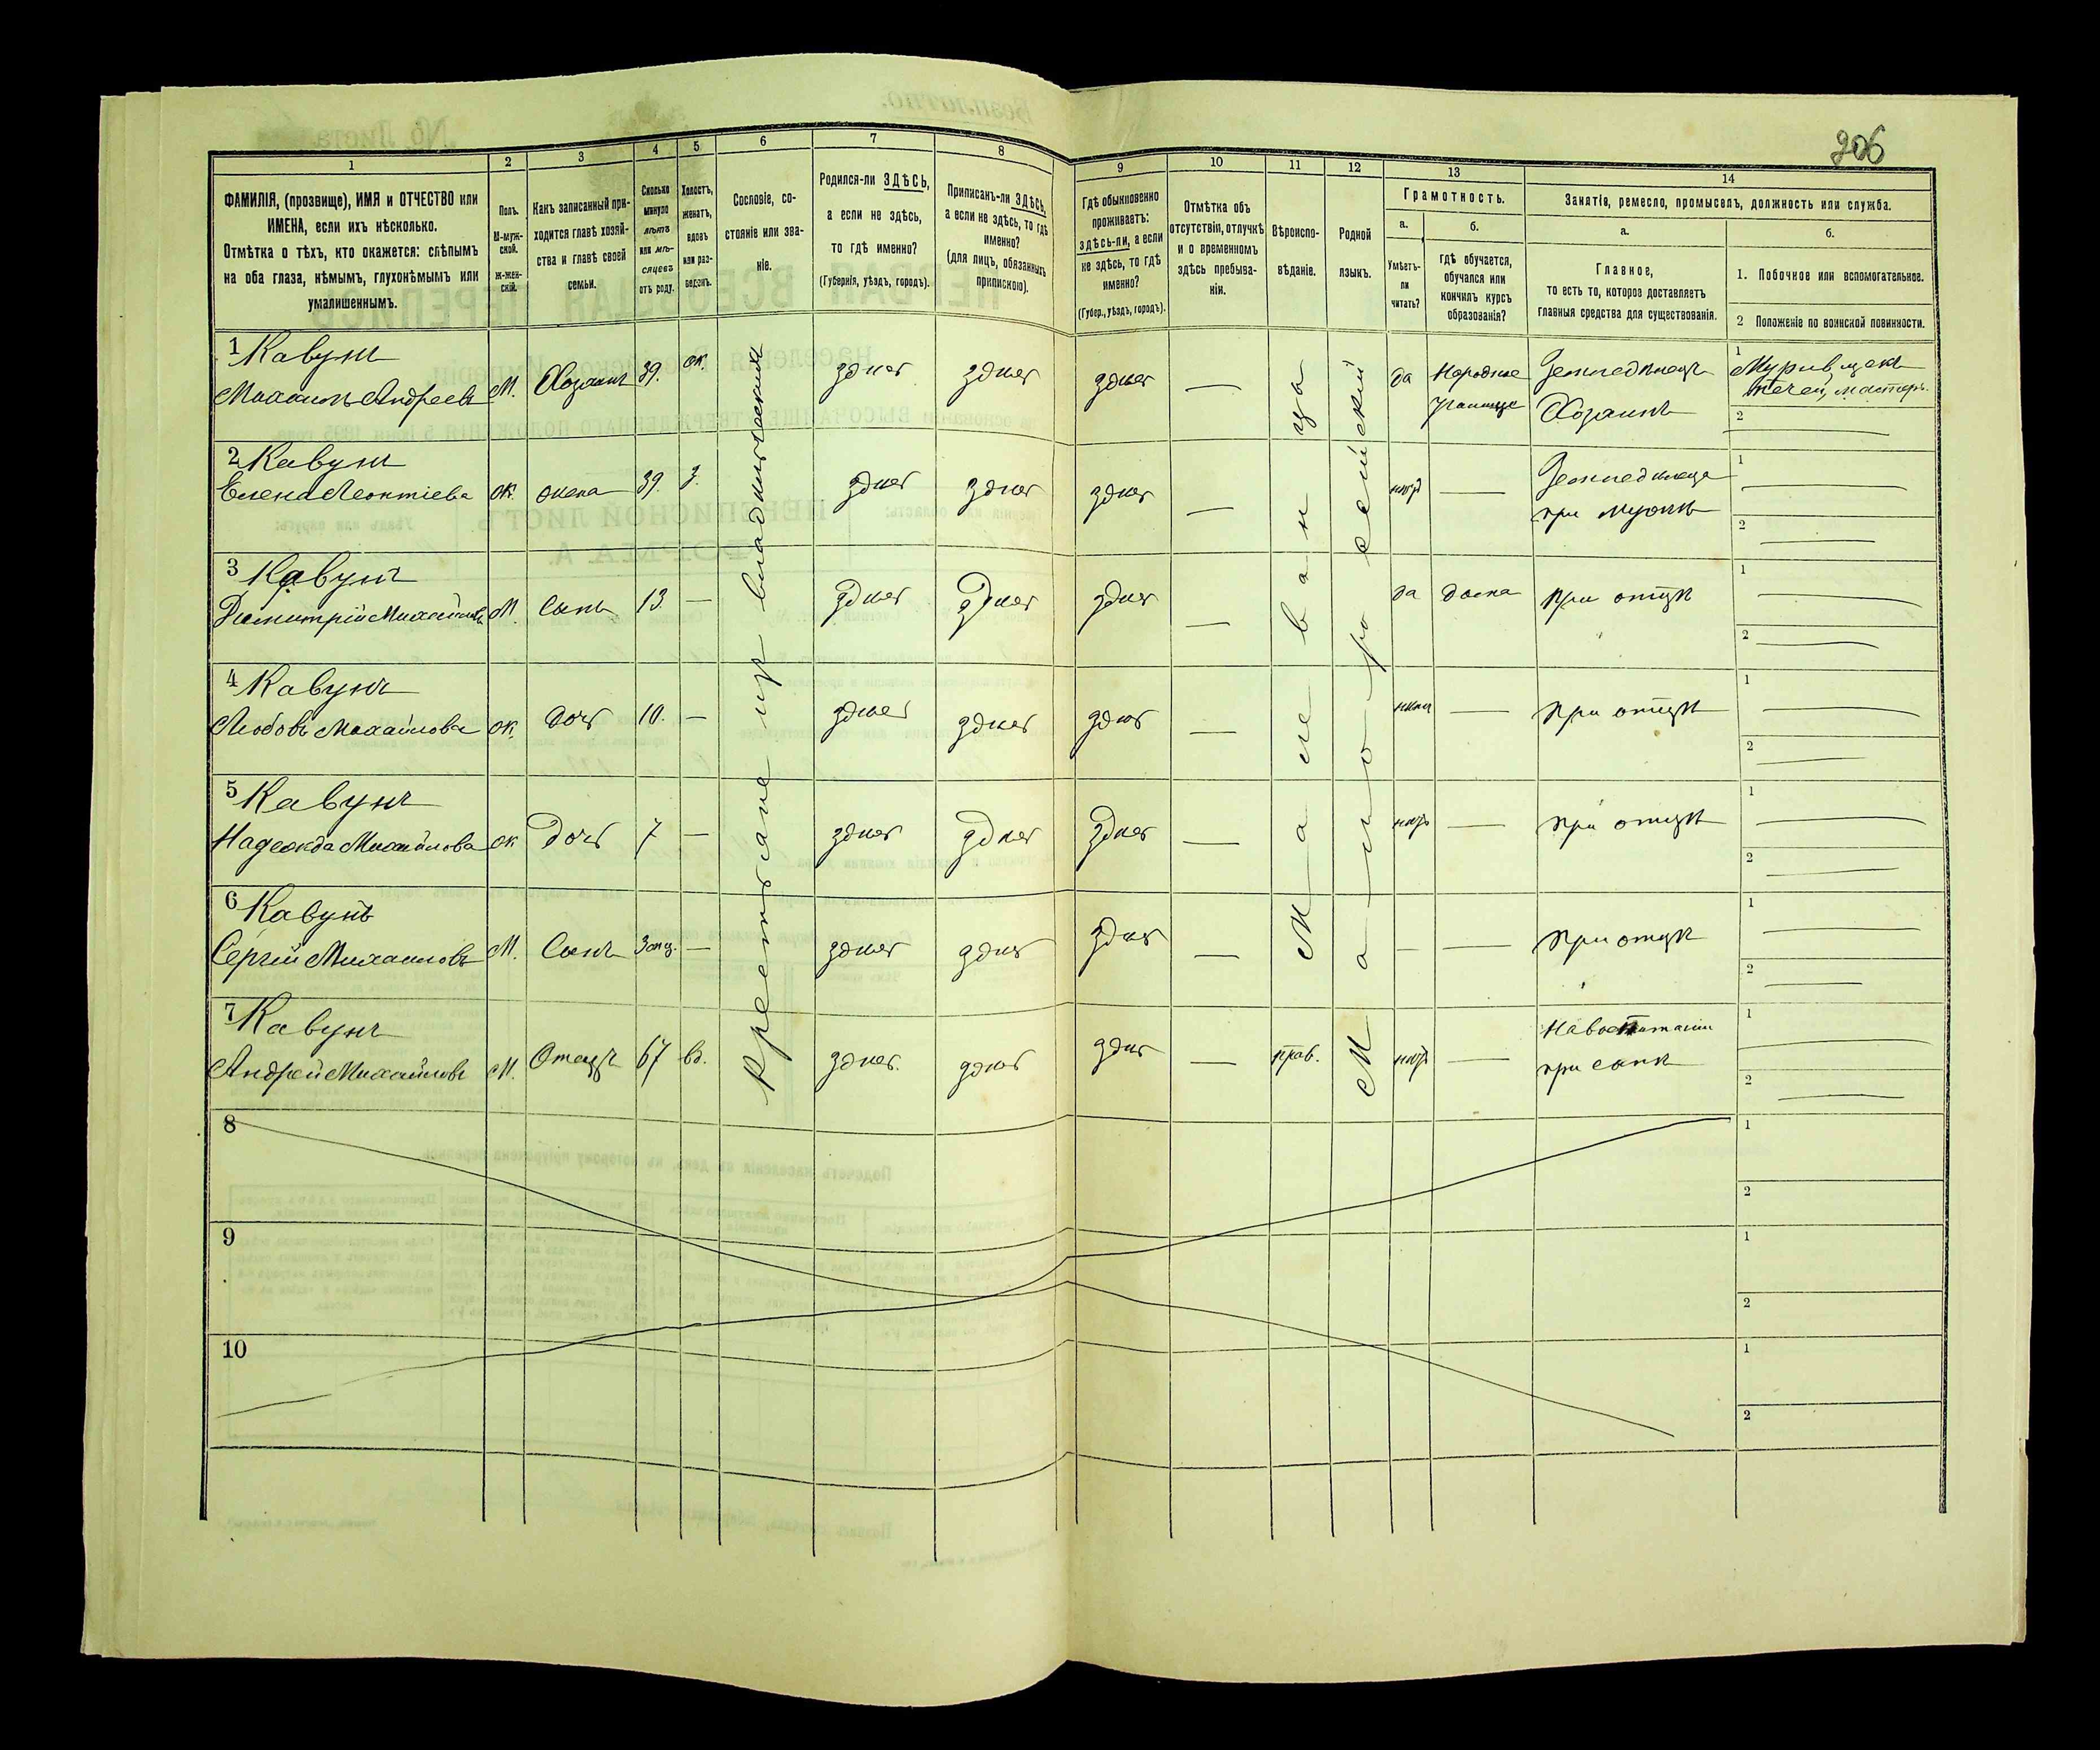 206
1 2 3 4 5 6 7 8 9 10 11 12 13 14
ФАМИЛІЯ, (прозвище), ИМЯ и ОТЧЕСТВО или
ИМЕНА, если ихъ нѣсколько.
Отмѣтка о тѣхъ, кто окажется: слѣпымъ
на оба глаза, нѣмымъ, глухонѣмымъ или
умалишеннымъ.
Полъ.
М-муж-
ской.
Ж-жен-
скій.
Какъ записанный при-
ходится главѣ хозяй-
ства и главѣ своей
семьи.
Сколько
минуло
лѣтъ
или мѣ-
сяцевъ
отъ роду.
Холостъ,
женатъ,
вдовъ
или раз-
веденъ.
Сословіе, со-
стояніе или зва-
ніе.
Родился-ли ЗДѢСЬ,
а если не здѣсь,
то гдѣ именно?
(Губернія, уѣздъ, городъ).
Приписанъ-ли ЗДѢСЬ,
а если не здѣсь, то гдѣ
именно?
(для лицъ, обязанныхъ
припискою).
Гдѣ обыкновенно
проживаетъ:
здѣсь-ли, а если
не здѣсь, то гдѣ
именно?
(Губер., уѣздъ, городъ).
Отмѣтка объ
отсутствіи, отлучкѣ
и о временномъ
здѣсь пребыва-
ніи.
Вѣроиспо-
вѣданіе.
Родной
языкъ.
Грамотность.
а.
Умѣетъ-
ли
читать?
б.
гдѣ обучается,
обучался или
кончилъ курсъ
образованія?
Занятіе, ремесло, промыселъ, должность или служба.
а.
Главное,
то есть то, которое доставляетъ
главныя средства для существованія.
б.
1. Побочное или вспомогательное.
2 Положеніе по воинской повинности.
Крестьяне изъ владѣльческихъ
Малеванцы
Малороссійскій
1 Кавунъ
Михаилъ Андреевъ М. Хозяинъ 39. ж. здѣсь здѣсь здѣсь — да Народное
училище
Земледѣлецъ
Хозяинъ
1
печей, мастеръ
2
2 Кавунъ
Елена Леонтіева ж. жена 39. з. здѣсь здѣсь здѣсь — нѣтъ —
Земледѣлеца
при мужѣ
1
2
3 Кавунъ
Димитрій Михайловъ М. Сынъ 13. — здѣсь здѣсь здѣсь — да дома при отцѣ
1
2
4 Кавунъ
Любовь Михайлова ж. дочь 10. — здѣсь здѣсь здѣсь — нѣтъ — при отцѣ
1
2
5 Кавунъ
Надежда Михайлова ж Дочь 7 — здѣсь здѣсь здѣсь — нѣтъ — при отцѣ
1
2
6 Кавунъ
Сергій Михайловъ М. Сынъ — здѣсь здѣсь здѣсь — — — при отцѣ
1
2
7 Кавунъ
Андрей Михайловъ М. Отецъ 67 вд. здѣсь. здѣсь здѣсь — прав. нѣтъ —
На воспитаніи
при сынѣ
1
2
8
1
2
9
1
2
10
1
2